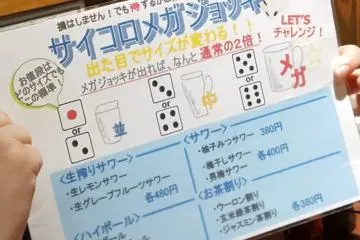 損はしません！でも得するか
サイコロメガジョッキ
出た目でサイズが変わる！！
メガジョッキが出れば、なんと通常の2倍！
LET'S
チャレンジ！
お値段は
どのサイズでも
この標準！
並
中
メガ
〈生搾りサワー〉
・生レモンサワー
・生グレープフルーツサワー
各480円
〈ハイボール〉
〈サワー〉
・柚子みつサワー 380円
・梅干しサワー 各400円
・男梅サワー
〈お茶割り〉
・ウーロン割り
・玄米緑茶割り 各380円
・ジャスミン茶割り